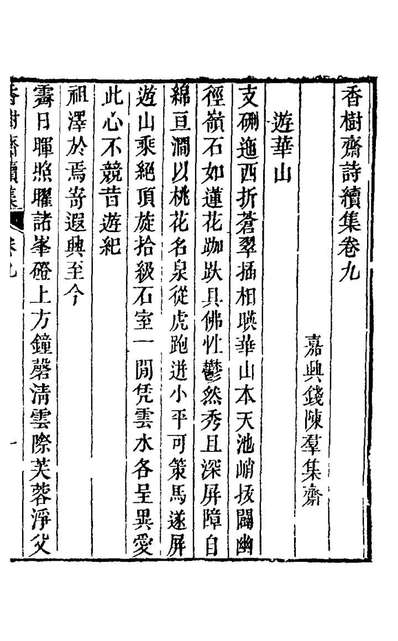 香樹齋詩續集卷九
嘉興錢陳羣集齋
遊華山
支硎迤西折蒼翠插相暎華山本天池峭拔闢幽
徑嶺石如蓮花跏趺具佛性鬱然秀且深屏障自
綿亘澗以桃花名泉從虎跑迸小平可策馬遂屏
遊山乘絕頂旋拾級石室一閒凭雲水各呈異愛
此心不競昔遊紀
祖澤於焉寄遐興至今
霽日暉照耀諸峯磴上方鐘磬清雲際芙蓉淨父
香樹齋續集 卷九 一